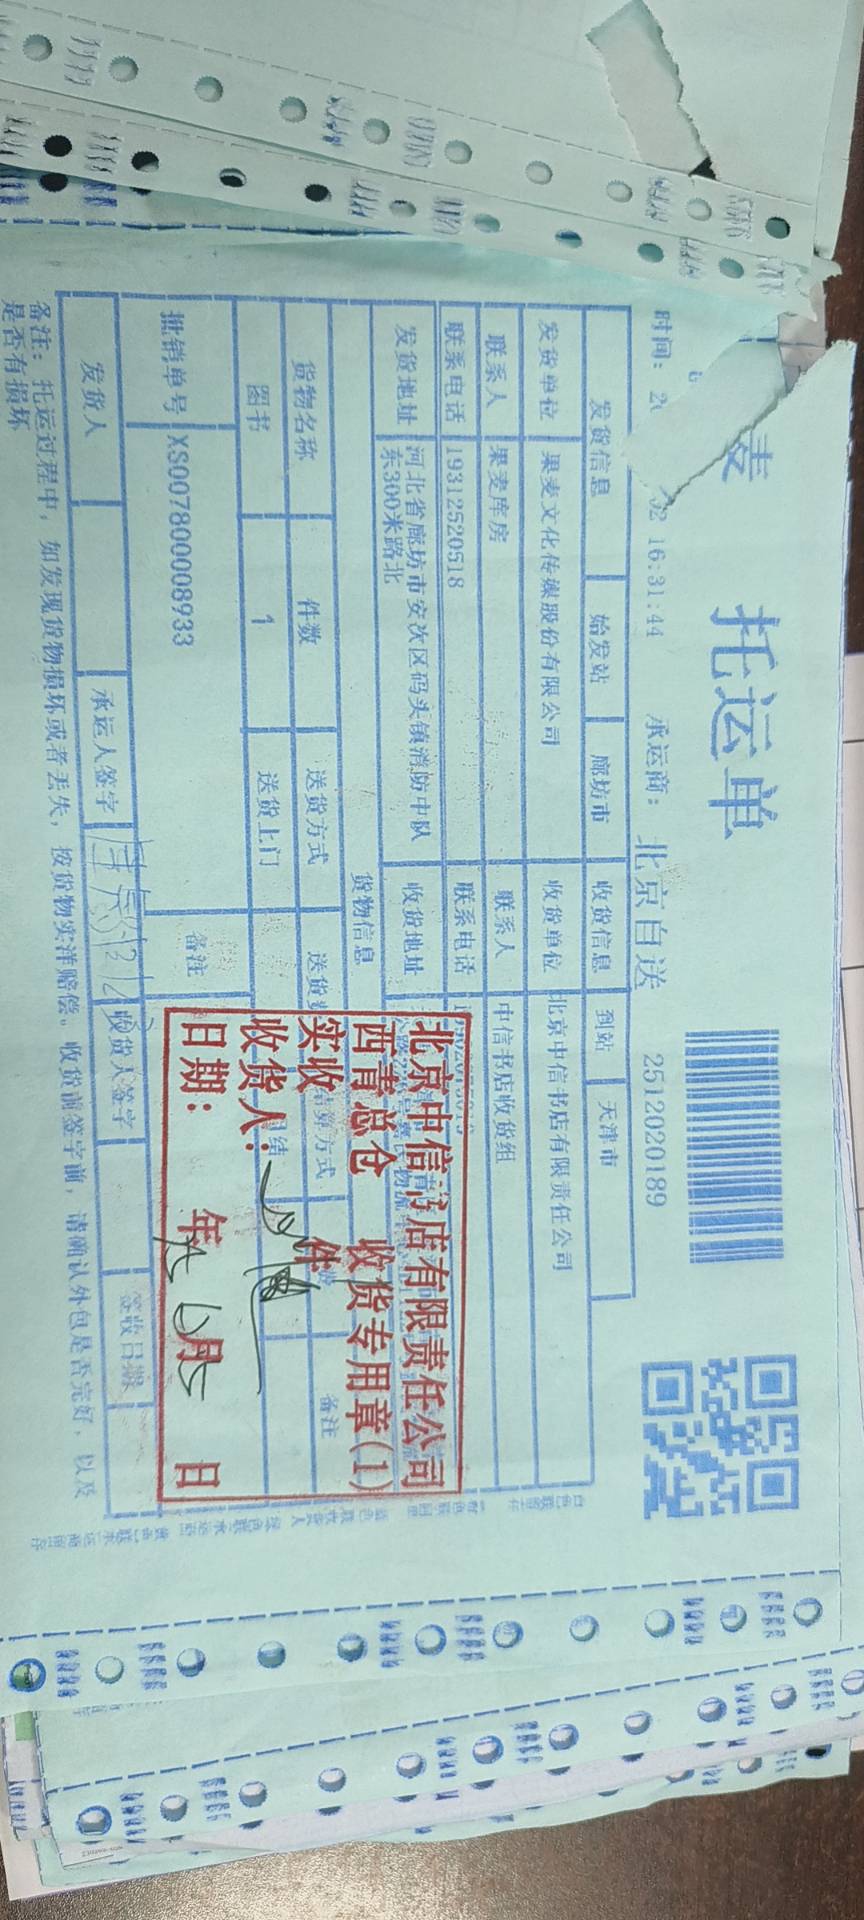 麦
托运单
02 16:31:44 承运商: 北京自送 2512020189
发货信息 始发站 廊坊市 收货信息 到站 天津市
发货单位 果麦文化传媒股份有限公司 收货单位 北京中信书店有限责任公司
联系人 果麦库房 联系人 中信书店收货组
联系电话 19312520518 联系电话
发货地址 河北省廊坊市安次区码头镇消防中队东300米路北 收货地址
货物信息
货物名称 件数 送货方式 备注
图书 1 送货上门
批销单号 XS007800008933 备注
发货人 承运人签字 收货人签字 签收日期
备注: 托运过程中, 如发现货物损坏或者丢失, 按货物实洋赔偿。收货前签字前, 请确认外包是否完好, 以及
是否有损坏
北京中信书店有限责任公司
西青总仓 收货专用章(1)
实收 件
收货人:
日期: 年 月 日